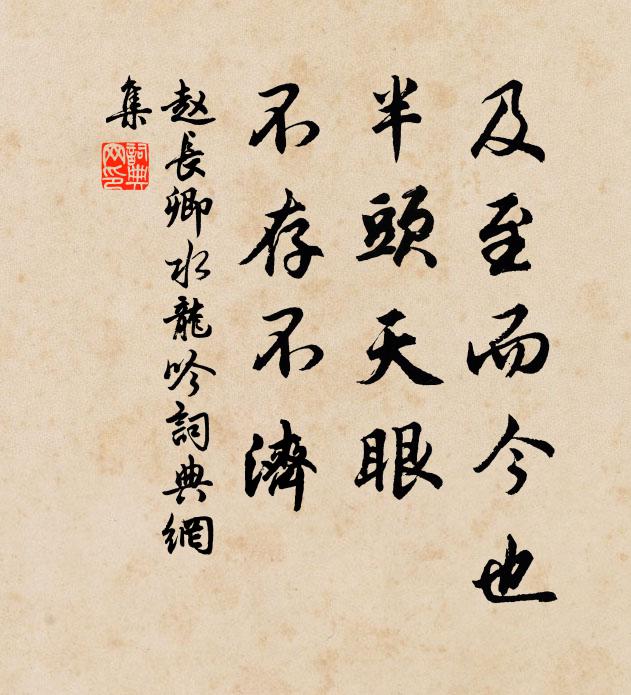 及至而今也
半頭天眼
不存不濟
赵長卿水龍吟詞典網
集
詞典
网印